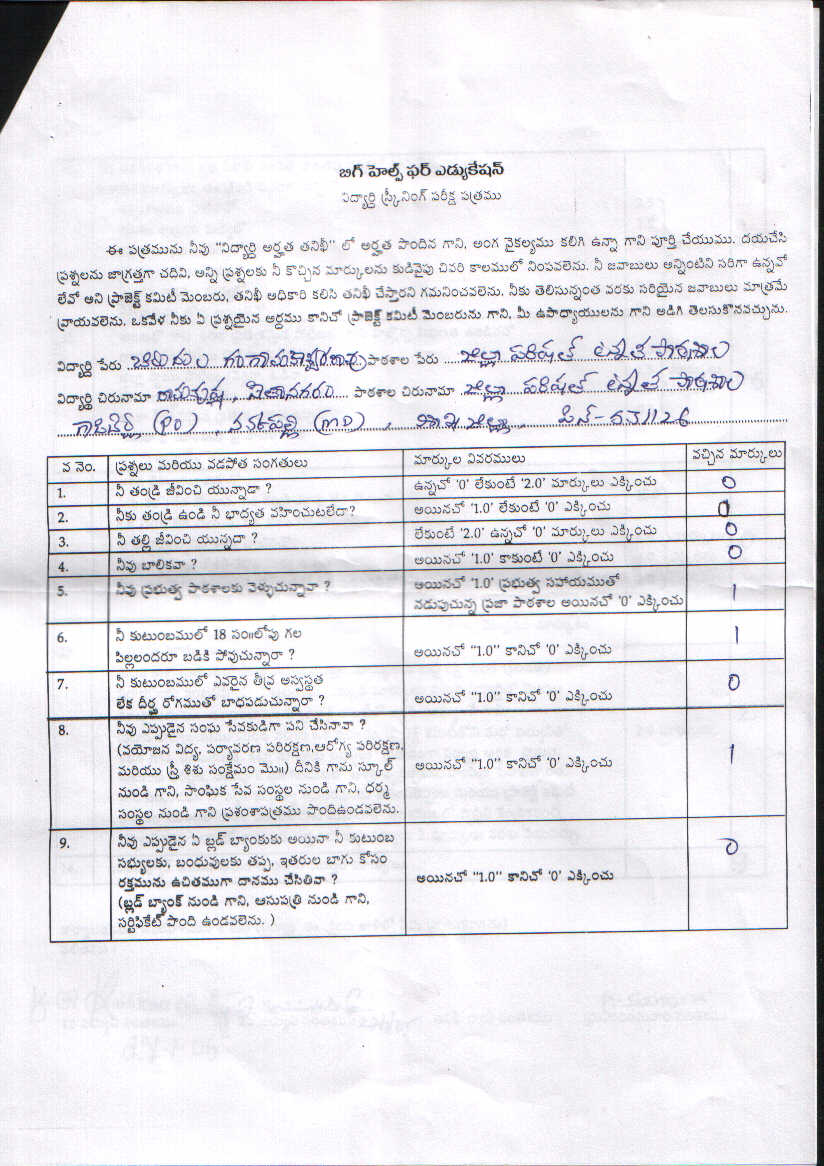 బిగ్ హెల్ప్ ఫర్ ఎడ్యుకేషన్
విద్యార్థి స్క్రీనింగ్ పరీక్ష పత్రము
ఈ పత్రమును నీవు "విద్యార్థి అర్హత తనిఖీ" లో అర్హత పొందిన గాని, అంగ వైకల్యము కలిగి ఉన్నా గాని పూర్తి చేయుము. దయచేసి
ప్రశ్నలను జాగ్రత్తగా చదివి, అన్ని ప్రశ్నలకు నీ కొచ్చిన మార్కులను కుడివైపు చివరి కాలములో నింపవలెను. నీ జవాబులు అన్నింటిని సరిగా ఉన్నవో
లేవో అని ప్రాజెక్ట్ కమిటీ మెంబరు, తనిఖీ అధికారి కలిసి తనిఖీ చేస్తారని గమనించవలెను. నీకు తెలిసున్నంత వరకు సరియైన జవాబులు మాత్రమే
వ్రాయవలెను. ఒకవేళ నీకు ఏ ప్రశ్నయైన అర్థము కానిచో ప్రాజెక్ట్ కమిటీ మెంబరును గాని, మీ ఉపాధ్యాయులను గాని అడిగి తెలసుకొనవచ్చును.
విద్యార్థి పేరు పాఠశాల పేరు జిల్లా పరిషత్ ఉన్నత పాఠశాల
విద్యార్థి చిరునామా పాఠశాల చిరునామా జిల్లా పరిషత్ ఉన్నత పాఠశాల
(PO), (MD), జిల్లా, పిన్-531126
వ నెం. ప్రశ్నలు మరియు వడపోత సంగతులు మార్కుల వివరములు వచ్చిన మార్కులు
1. నీ తండ్రి జీవించి యున్నాడా ? ఉన్నచో '0' లేకుంటే '2.0' మార్కులు ఎక్కించు 0
2. నీకు తండ్రి ఉండి నీ భాధ్యత వహించుటలేదా? అయినచో '1.0' లేకుంటే '0' ఎక్కించు 0
3. నీ తల్లి జీవించి యున్నదా ? లేకుంటే '2.0' ఉన్నచో '0' మార్కులు ఎక్కించు 0
4. నీవు బాలికవా ? అయినచో '1.0' కాకుంటే '0' ఎక్కించు 0
5. నీవు ప్రభుత్వ పాఠశాలకు వెళ్ళుచున్నావా ? అయినచో '1.0' ప్రభుత్వ సహాయముతో 1
నడుపుచున్న ప్రజా పాఠశాల అయినచో '0' ఎక్కించు
6. నీ కుటుంబములో 18 సం॥లోపు గల 1
పిల్లలందరూ బడికి పోవుచున్నారా ? అయినచో "1.0" కానిచో '0' ఎక్కించు
7. నీ కుటుంబములో ఎవరైన తీవ్ర అస్వస్థత 0
లేక దీర్ఘ రోగముతో బాధపడుచున్నారా ? అయినచో "1.0" కానిచో '0' ఎక్కించు
8. నీవు ఎప్పుడైన సంఘ సేవకుడిగా పని చేసినావా ?
(వయోజన విద్య, పర్యావరణ పరిరక్షణ,ఆరోగ్య పరిరక్షణ,
మరియు స్త్రీ శిశు సంక్షేమం మొ॥) దీనికి గాను స్కూల్ అయినచో "1.0" కానిచో '0' ఎక్కించు 1
నుండి గాని, సాంఘిక సేవ సంస్థల నుండి గాని, ధర్మ
సంస్థల నుండి గాని ప్రశంశాపత్రము పొందిఉండవలెను.
9. నీవు ఎప్పుడైన ఏ బ్లడ్ బ్యాంకుకు అయినా నీ కుటుంబ 0
సభ్యులకు, బంధువులకు తప్ప, ఇతరుల బాగు కోసం
రక్తమును ఉచితముగా దానము చేసితివా ? అయినచో "1.0" కానిచో '0' ఎక్కించు
(బ్లడ్ బ్యాంక్ నుండి గాని, ఆసుపత్రి నుండి గాని,
సర్టిఫికేట్ పొంది ఉండవలెను. )